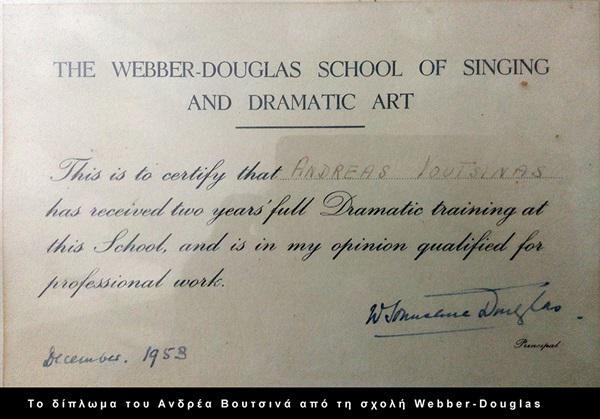 THE WEBBER-DOUGLAS SCHOOL OF SINGING
AND DRAMATIC ART
This is to certify that ANDREAS VOUTSINAS
has received two years' full Dramatic training at
this School, and is in my opinion qualified for
professional work.
Douglas.
Principal
December. 1953
Το δίπλωμα του Ανδρέα Βουτσινά από τη σχολή Webber-Douglas